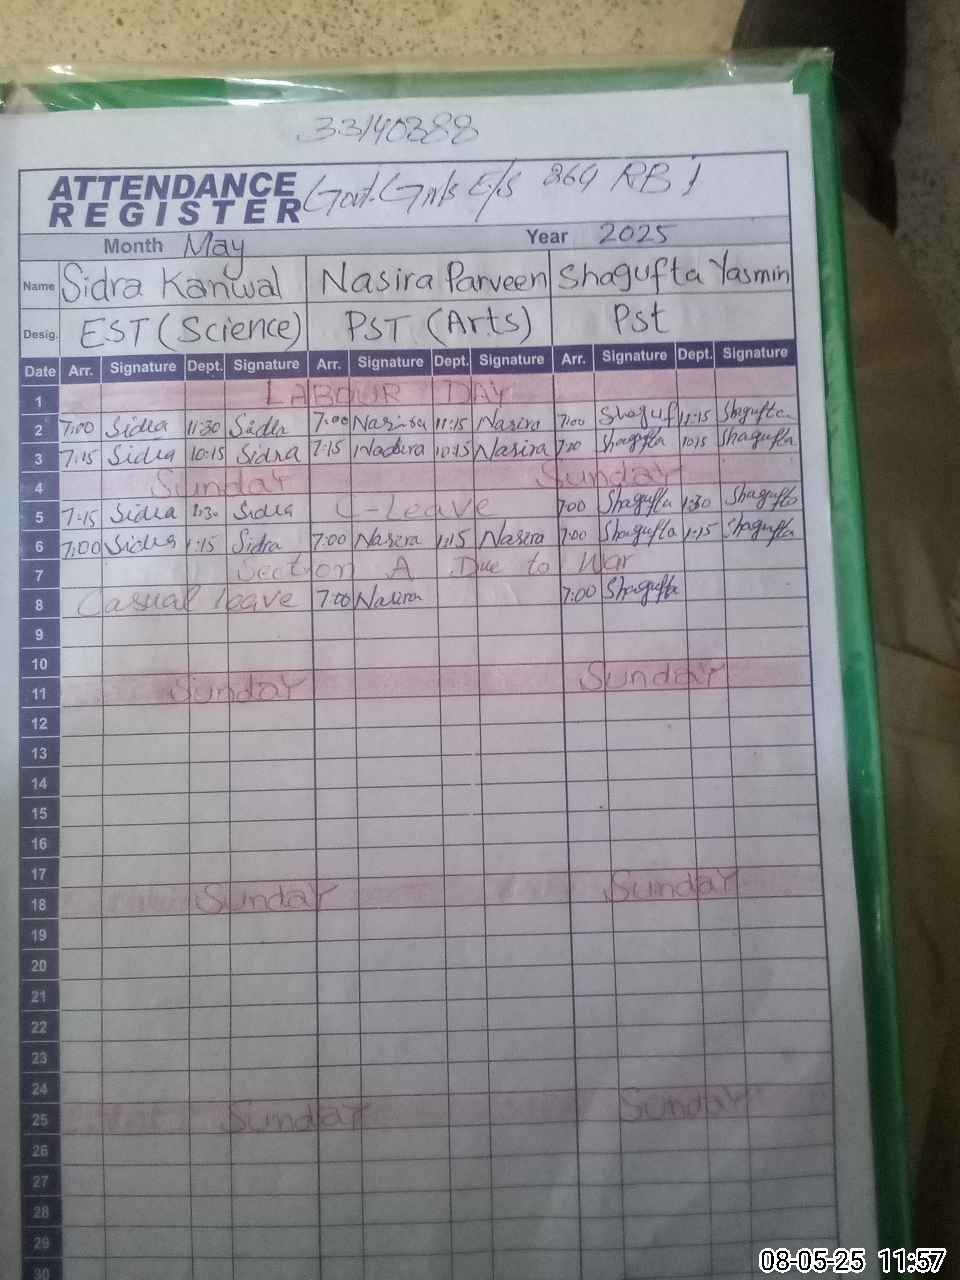 33140388
ATTENDANCE REGISTER Govt. Girls E/S 269 RB 1
Month May Year 2025
Name Sidra Kanwal Nasira Parveen Shagufta Yasmin
Desig. EST (Science) PST (Arts) Pst
Date Arr. Signature Dept. Signature Arr. Signature Dept. Signature Arr. Signature Dept. Signature
1 LABOUR DAY
2 7:00 Sidra 11:30 Sidra 7:00 Nasira 11:15 Nasira 7:00 Shaguf 11:15 Shagufta
3 7:15 Sidra 10:15 Sidra 7:15 Nasira 10:15 Nasira 7:00 Shagufta 10:15 Shagufta
4 Sunday Sunday
5 7:15 Sidra 1:30 Sidra C-Leave 7:00 Shagufta 1:30 Shagufta
6 7:00 Sidra 1:15 Sidra 7:00 Nasira 1:15 Nasira 7:00 Shagufta 1:15 Shagufta
7 Section A Due to War
8 Casual leave 7:00 Nasira 7:00 Shagufta
9
10
11 Sunday Sunday
12
13
14
15
16
17
18 Sunday Sunday
19
20
21
22
23
24
25 Sunday Sunday
26
27
28
29
30
08-05-25 11:57